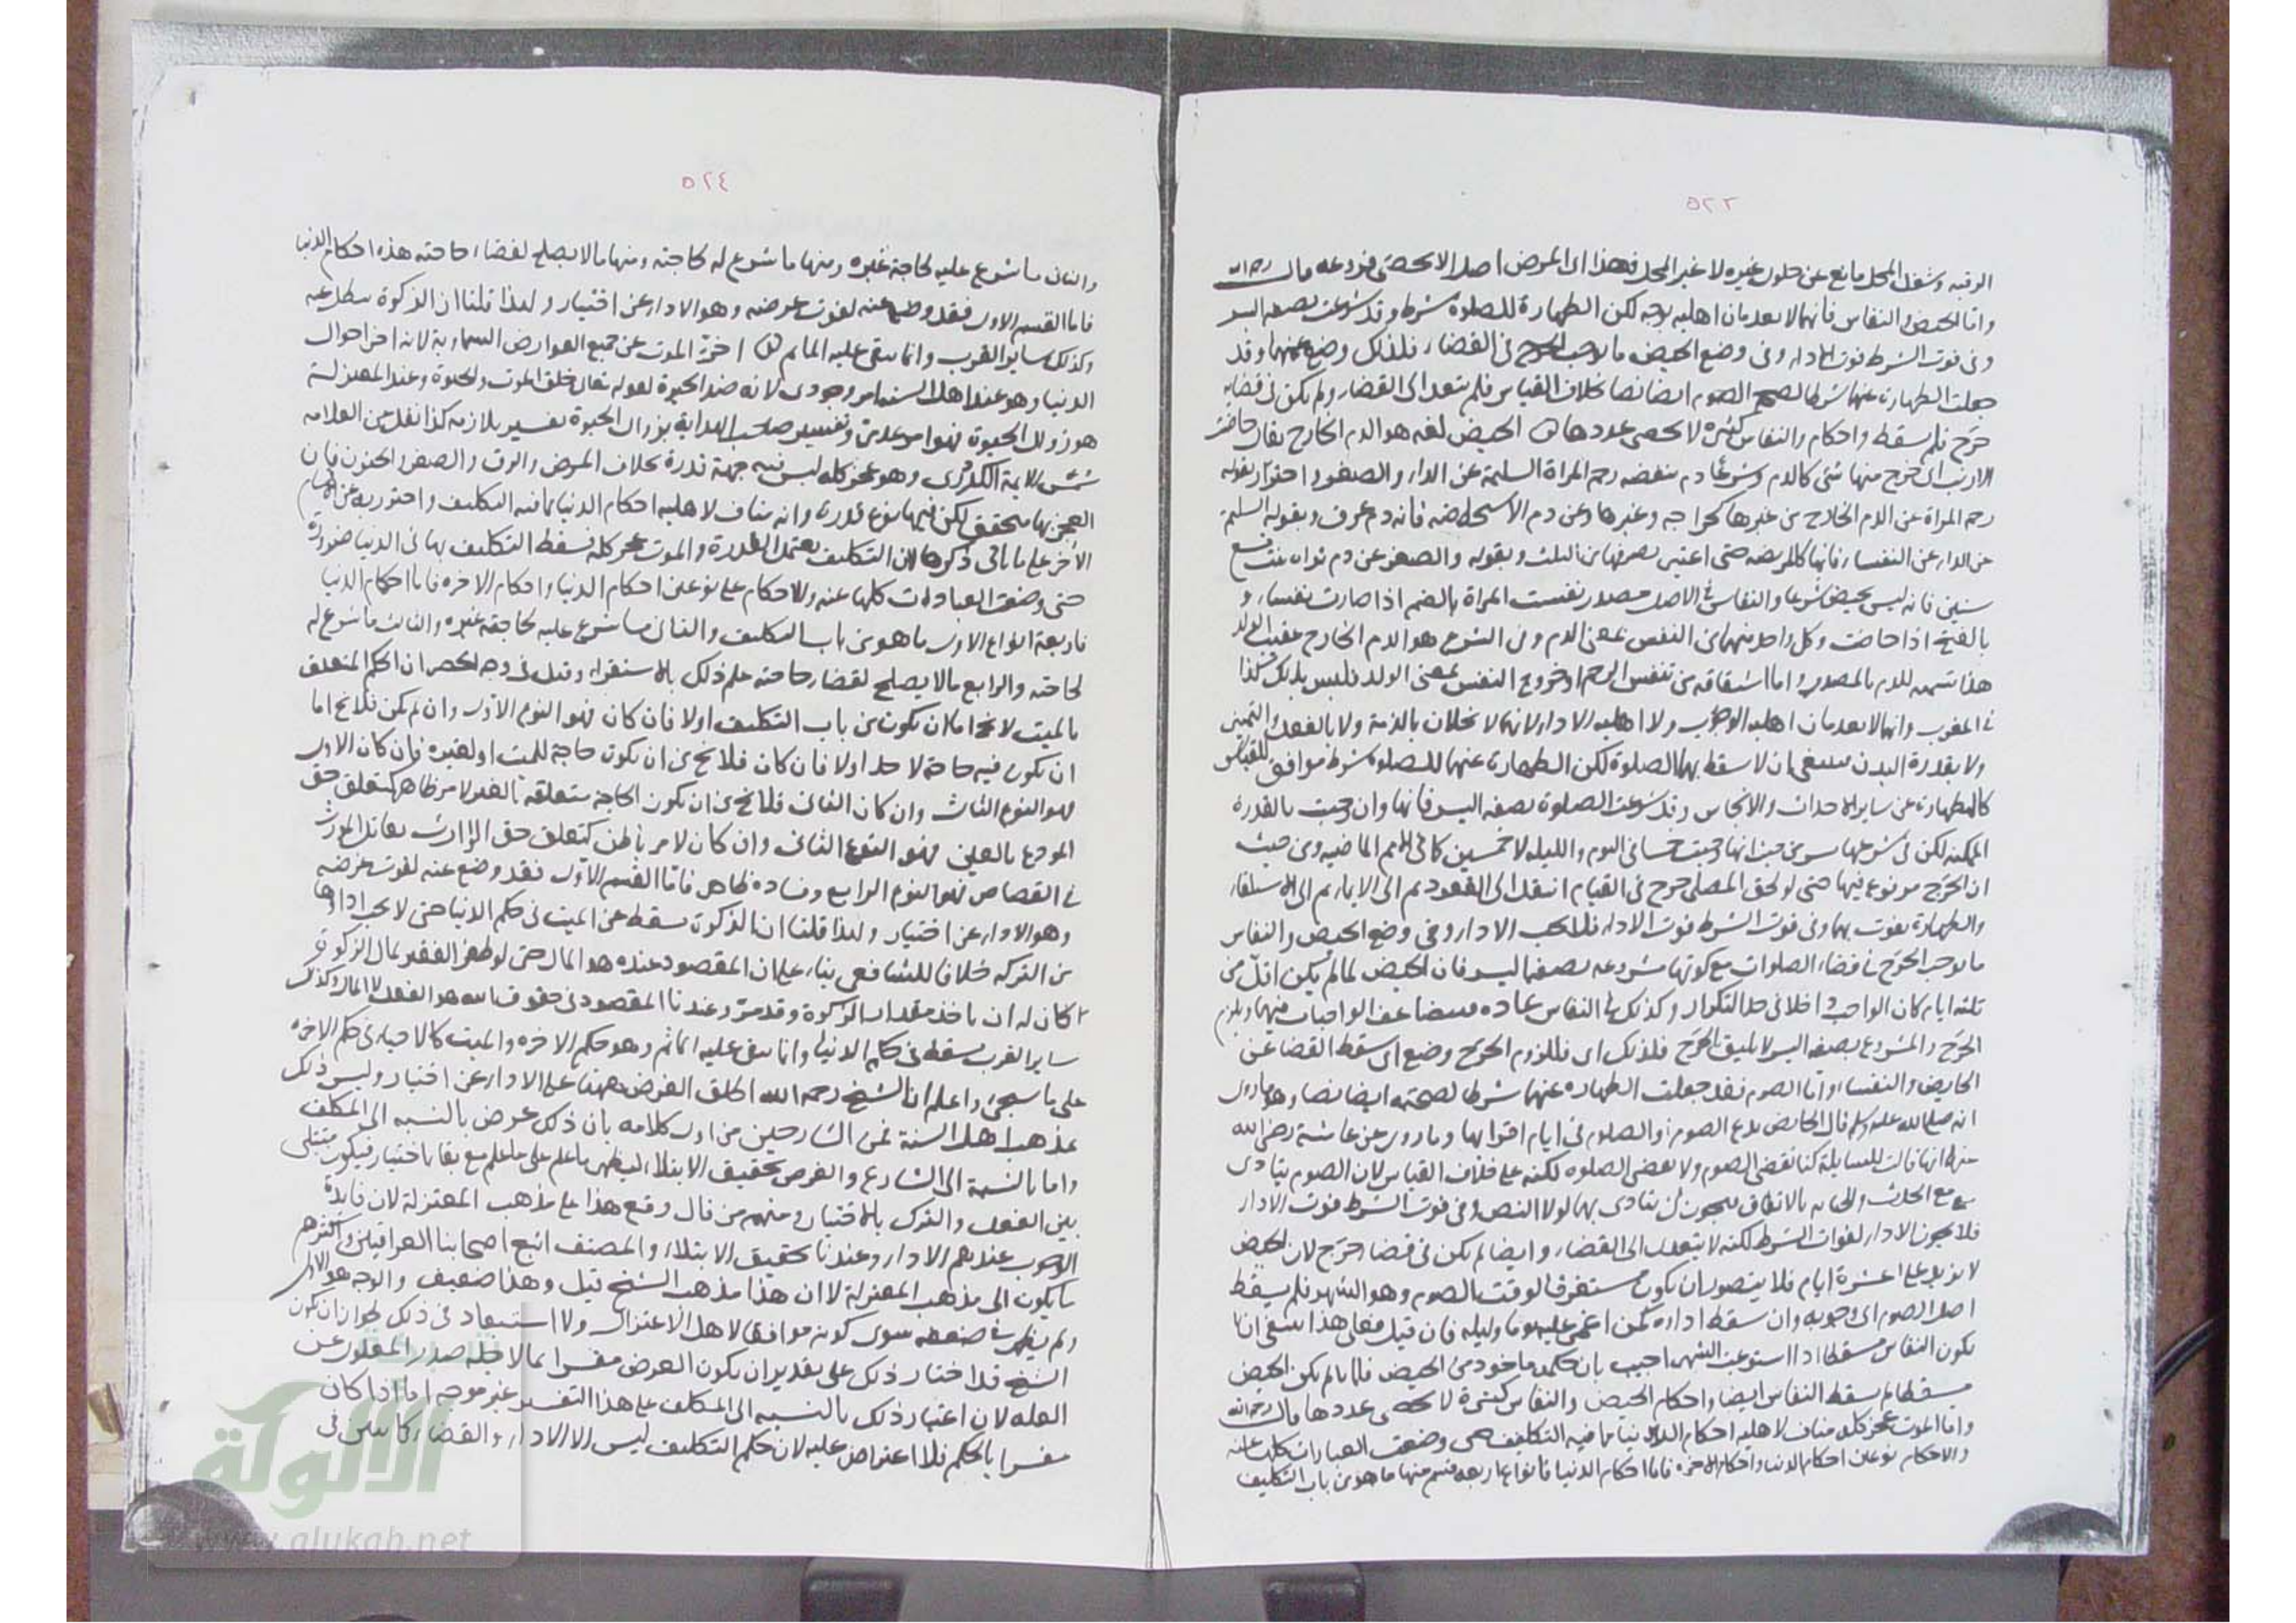 ٥٢٣
الرقبه وشغل المحل مانع عن حلول غيره لا غير المحل فهذا اى المرض اصل لا يحصى فروعه قال رحمه الله
واما الحيض والنفاس فانهما لا يعدمان اهليه بوجه لكن الطهارة للصلوة شرط وقد شرعت بصفه اليسر
وفى فوت الشرط فوت الاداء وفى وضع الحيض ما يوجب الحرج فى القضاء فلذلك وضع عنهما وقد
جعلت الطهارة عنهما شرطا لصحة الصوم ايضا نصا بخلاف القياس فلم يتعد الى القضاء ولم يكن فى قضايه
حرج فلم يسقط واحكام والنفاس كثيره لا يحصى عددها الحيض لغه هو الدم الخارج يقال حاضت
الارنب اى خرج منها شئ كالدم وشرعا دم ينفضه رحم المراة السليمة عن الداء والصغر احترز بقوله
رحم المراة عن الدم الخارج من غيرها كجراحه وغيرها وعن دم الاستحاضه فانه دم عرق وبقوله السليمة
عن الداء عن النفساء فانها كالمريضه حتى اعتبر تصرفها من الثلث وبقوله والصغر عن دم تراه بنت تسع
سنين فانه ليس بحيض شرعا والنفاس فى الاصل مصدر نفست المراة بالضم اذا صارت نفساء و
بالفتح اذا حاضت وكل واحد منهما من النفس بمعنى الدم وفى الشرع هو الدم الخارج عقيب الولد
هذا تسميه للدم بالمصدر واما اشتقاقه من تنفس الرحم او خروج النفس بمعنى الولد فليس بذلك كذا
فى المغرب وانهما لا يعدمان اهليه الوجوب ولا اهليه الاداء لانهما لا يخلان بالذمة ولا بالعقل والتميز
ولا بقدرة البدن فينبغى ان لا يسقط بهما الصلوة لكن الطهارة عنهما للصلوة شرط موافق للقياس
كالطهارة عن ساير الاحداث والانجاس وقد شرعت الصلوة بصفه اليسر فانها وان وجبت بالقدرة
الممكنه لكن فى شرعها يسر من حيث انها وجبت خمسا فى اليوم والليله لا خمسين كما فى الامم الماضيه ومن حيث
ان الحرج مرفوع فيها حتى لو لحق المصلى حرج فى القيام انتقل الى القعود ثم الى الايماء ثم الى الاستلقاء
والطهارة تفوت بهما وفى فوت الشرط فوت الاداء فلا يجب الاداء وفى وضع الحيض والنفاس
ما يوجب الحرج فى قضاء الصلوات مع كونها مشروعه بصفه اليسر فان الحيض لما لم يكن اقل من
ثلثه ايام كان الواجب داخلا فى حد التكرار وكذلك فى النفاس عاده فيتضاعف الواجبات منهما ويلزم
الحرج والمشروع بصفه اليسر لا يليق الحرج فلذلك اى فللزوم الحرج وضع اى سقط القضا عن
الحايض والنفساء واما الصوم فقد جعلت الطهاره عنهما شرطا لصحته ايضا نصا وهو ما روى
انه صلى الله عليه وسلم قال الحايض تدع الصوم والصلوة فى ايام اقرائها وما روى عن عائشة رضى الله
عنها انها قالت للسايلة كنا نقضى الصوم ولا نقضى الصلوه لكنه على خلاف القياس لان الصوم يتادى
مع الحدث والجنابه بالاتفاق فيجوز ان يتادى بهما لولا النص وفى فوت الشرط فوت الاداء
فلا يجوز الاداء لفوات الشرط لكنه لا يتعدى الى القضاء وايضا لم يكن فى قضاء حرج لان الحيض
لا يزيد على عشرة ايام فلا يتصور ان يكون مستغرقا لوقت الصوم وهو الشهر فلم يسقط
اصل الصوم اى وجوبه وان سقط اداؤه كمن اغمى عليه يوما وليله فان قيل فعلى هذا ينبغى ان لا
يكون النفاس مسقطا اذا استوعب الشهر اجيب بان حكمه ماخوذ من الحيض فلما لم يكن الحيض
مسقطا لم يسقط النفاس ايضا واحكام الحيض والنفاس كثيرة لا يحصى عددها قال رحمه الله
واما الموت عجز كله مناف لاهليه احكام الدنيا مما فيه التكليف حتى وضعت العبادات كلها عنه
والاحكام نوعان احكام الدنيا واحكام الاخره فاما احكام الدنيا فانواع اربعه قسم منها ما هو من باب التكليف
٥٢٤
والثانى ما شرع عليه لحاجة غيره ومنها ما شرع له لحاجته ومنها ما لا يصلح لقضاء حاجته هذه احكام الدنيا
فاما القسم الاول فقد وضع عنه لفوت غرضه وهو الاداء عن اختيار ولهذا قلنا ان الزكوة تبطل عنه
وكذلك ساير القرب وانما يبقى عليه الماثم اخر الموت عن جميع العوارض السماوية لانه اخر احوال
الدنيا وهو عند اهل السنه امر وجودى لانه ضد الحيوة لقوله تعالى خلق الموت والحيوة وعند المعتزلة
هو زوال الحيوة فهو امر عدمى وتفسير صاحب الهداية بزوال الحيوة تفسير بلازمه كذا نقل عن العلامه
شمس الايمة الكردرى وهو عجز كله ليس فيه جهة قدرة بخلاف المرض والرق والصغر والجنون فان
العجز بها متحقق لكن فيها نوع قدرة وانه مناف لاهليه احكام الدنيا مما فيه التكليف واحترز به عن احكام
الاخرة على ما ياتى ذكرها لان التكليف يعتمد القدرة والموت عجز كله فسقط التكليف بها فى الدنيا ضرورة
حتى وضعت العبادات كلها عنه والاحكام على نوعين احكام الدنيا واحكام الاخره فاما احكام الدنيا
فاربعة انواع الاول ما هو من باب التكليف والثانى ما شرع عليه لحاجة غيره والثالث ما شرع له
لحاجته والرابع ما لا يصلح لقضاء حاجته علم ذلك بالاستقراء وقيل فى وجه الحصر ان الحكم المتعلق
بالميت لا يخ اما ان يكون من باب التكليف اولا فان كان فهو النوع الاول وان لم يكن فلا يخ اما
ان يكون فيه حاجة لاحد اولا فان كان فلا يخ من ان يكون حاجة للميت او لغيره فان كان الاول
فهو النوع الثالث وان كان الثانى فلا يخ من ان يكون الحاجة متعلقه لامر ظاهر كتعلق حق
المودع بالعين فهو النوع الثانى وان كان لامر باطن كتعلق حق الوارث بقاتل المورث
فى القصاص فهو النوع الرابع وفساده ظاهر فاما القسم الاول فقد وضع عنه لفوت غرضه
وهو الاداء عن اختيار ولهذا قلنا ان الزكوة تسقط عن الميت فى حكم الدنيا حتى لا يجب اداؤها
من التركه خلافا للشافعى بناء على ان المقصود عنده هو المال حتى لو ظفر الفقير بمال الزكوة
كان له ان ياخذ مقدار الزكوة وقد مر وعندنا المقصود فى حقوق الله هو الفعل لا المال وكذلك
ساير القرب تسقط فى حكم الدنيا وانما يبقى عليه الماثم وهو حكم الاخره والميت كالاحياء فى حكم الاخره
على ما سيجئ واعلم ان الشيخ رحمه الله اطلق الغرض ههنا على الاداء عن اختيار وليس ذلك
مذهب اهل السنة فمن الشارحين من اول كلامه بان ذلك غرض بالنسبه الى المكلف
واما بالنسبة الى الشارع والغرض تحقيق الابتلاء ليظهر ما علم على ما علم مع بقا اختيار فيكون مبتلى
بين الفعل والترك بالاختيار ومنهم من قال وقع هذا على مذهب المعتزلة لان فايدة
الوجوب عندهم الاداء وعندنا تحقيق الابتلاء والمصنف اتبع اصحابنا العراقيين واكثرهم
مايلون الى مذهب المعتزلة لا ان هذا مذهب الشيخ قيل وهذا ضعيف والوجه هو الاول
ولم يظهر ضعفه سوى كونه موافقا لاهل الاعتزال ولا استبعاد فى ذلك لجواز ان يكون
الشيخ قد اختار ذلك على تقدير ان يكون الغرض مفسرا بما لاجله صدر المعلول عن
العله لان اعتبار ذلك بالنسبه الى المكلف على هذا التفسير غير موجه اما اذا كان
مفسرا بالحكم فلا اعتراض عليه لان حكم التكليف ليس الا الاداء والقضاء كما تبين فى
شبكة
الألوكة
www.alukah.net